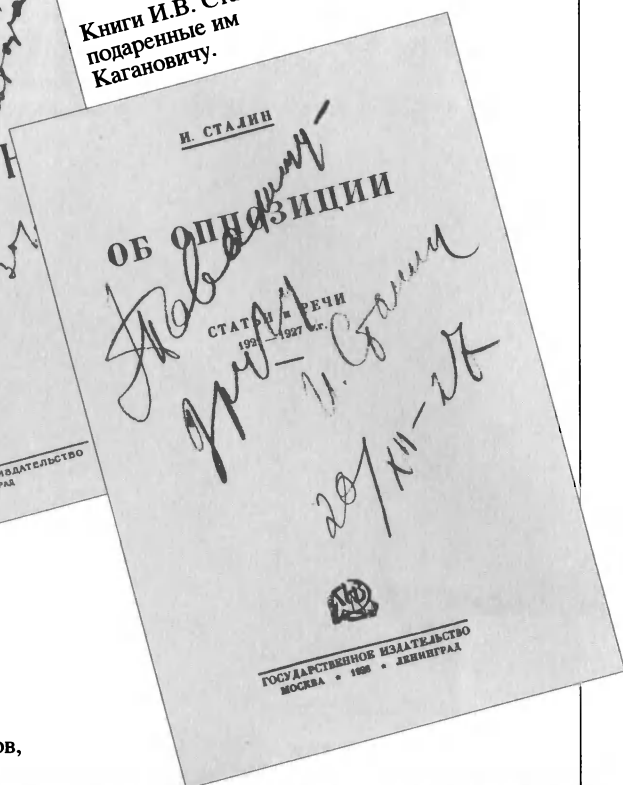 Книги И.В. Ст
подаренные им
Кагановичу.
И. СТАЛИН
ОБ ОППОЗИЦИИ
СТАТЬИ и РЕЧИ
1921—1927 г.г.
И. Сталин
20/XII—27
ГОСУДАРСТВЕННОЕ ИЗДАТЕЛЬСТВО
МОСКВА • 1928 • ЛЕНИНГРАД
ИЗДАТЕЛЬСТВО
РАД
ов,